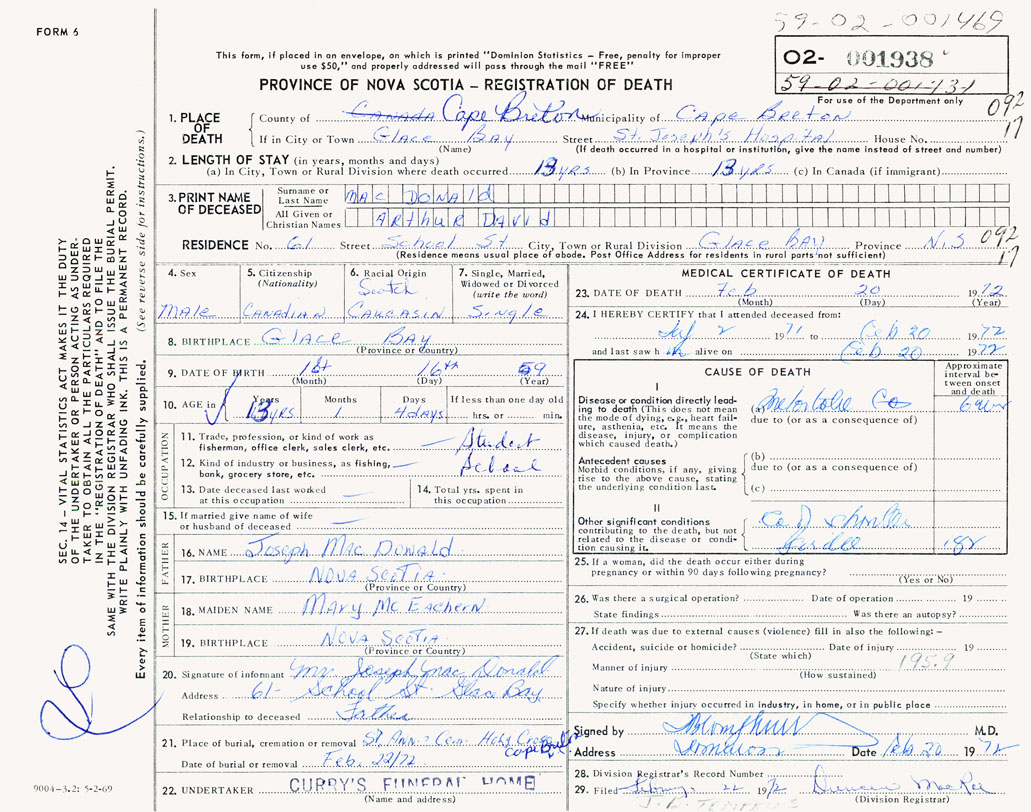 FORM 6
59-02-001469
02- 001938
59-02-001431
For use of the Department only
This form, if placed in an envelope, on which is printed "Dominion Statistics – Free, penalty for improper
use $50," and properly addressed will pass through the mail "FREE"
PROVINCE OF NOVA SCOTIA – REGISTRATION OF DEATH
092
17
1. PLACE OF DEATH
County of Canada Cape Breton Municipality of Cape Breton
If in City or Town Glace Bay Street St. Joseph's Hospital House No.
(Name) (If death occurred in a hospital or institution, give the name instead of street and number)
2. LENGTH OF STAY (in years, months and days)
(a) In City, Town or Rural Division where death occurred 13 yrs (b) In Province 13 yrs (c) In Canada (if immigrant)
3. PRINT NAME OF DECEASED
Surname or Last Name MAC DONALD
All Given or Christian Names ARTHUR DAVID
RESIDENCE No. 61 Street School St. City, Town or Rural Division Glace Bay Province N.S
092
17
(Residence means usual place of abode. Post Office Address for residents in rural parts not sufficient)
4. Sex
Male
5. Citizenship
(Nationality)
Canadian
6. Racial Origin
Scotch
Caucasin
7. Single, Married,
Widowed or Divorced
(write the word)
Single
8. BIRTHPLACE Glace Bay
(Province or Country)
9. DATE OF BIRTH 1st 16th 59
(Month) (Day) (Year)
10. AGE in
Years Months Days If less than one day old
13 yrs 1 4 days hrs. or min.
OCCUPATION
11. Trade, profession, or kind of work as
fisherman, office clerk, sales clerk, etc. Student
12. Kind of industry or business, as fishing,
bank, grocery store, etc. School
13. Date deceased last worked
at this occupation
14. Total yrs. spent in
this occupation
15. If married give name of wife
or husband of deceased
FATHER
16. NAME Joseph Mac Donald
17. BIRTHPLACE Nova Scotia
(Province or Country)
MOTHER
18. MAIDEN NAME Mary McEachern
19. BIRTHPLACE Nova Scotia
(Province or Country)
20. Signature of informant Mr Joseph Mac Donald
Address 61- School St Glace Bay
Relationship to deceased Father
21. Place of burial, cremation or removal St. Anns Cem. Holy Cross Cape Breton
Date of burial or removal Feb. 22/72
22. UNDERTAKER CURRY'S FUNERAL HOME
(Name and address)
MEDICAL CERTIFICATE OF DEATH
23. DATE OF DEATH Feb 20 1972
(Month) (Day) (Year)
24. I HEREBY CERTIFY that I attended deceased from:
2 1971 to Feb 20 1972
and last saw h im alive on Feb. 20 1972
CAUSE OF DEATH
Approximate
interval be-
tween onset
and death
I
Disease or condition directly lead-
ing to death (This does not mean
the mode of dying, e.g., heart fail-
ure, asthenia, etc. It means the
disease, injury, or complication
which caused death.)
(a)
due to (or as a consequence of)
Antecedent causes
Morbid conditions, if any, giving
rise to the above cause, stating
the underlying condition last.
(b)
due to (or as a consequence of)
(c)
II
Other significant conditions
contributing to the death, but not
related to the disease or condi-
tion causing it.
25. If a woman, did the death occur either during
pregnancy or within 90 days following pregnancy?
(Yes or No)
26. Was there a surgical operation? Date of operation 19
State findings Was there an autopsy?
27. If death was due to external causes (violence) fill in also the following: –
Accident, suicide or homicide? Date of injury 19
(State which)
Manner of injury 195.9
(How sustained)
Nature of injury
Specify whether injury occurred in industry, in home, or in public place
Signed by M.D.
Address Dominion Date Feb 20 1972
28. Division Registrar's Record Number
29. Filed February 22 1972 Duncan MacRae
(Division Registrar)
SEC. 14 – VITAL STATISTICS ACT MAKES IT THE DUTY
OF THE UNDERTAKER OR PERSON ACTING AS UNDER-
TAKER TO OBTAIN ALL THE PARTICULARS REQUIRED
IN THE "REGISTRATION OF DEATH" AND TO FILE THE
SAME WITH THE DIVISION REGISTRAR WHO SHALL ISSUE THE BURIAL PERMIT.
WRITE PLAINLY WITH UNFADING INK. THIS IS A PERMANENT RECORD.
Every item of information should be carefully supplied. (See reverse side for instructions.)
9004-3.2: 5-2-69